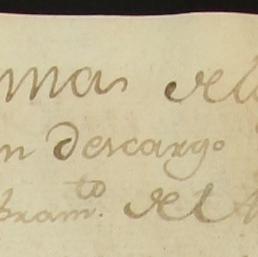 mas del
n descargo
bram.to del A